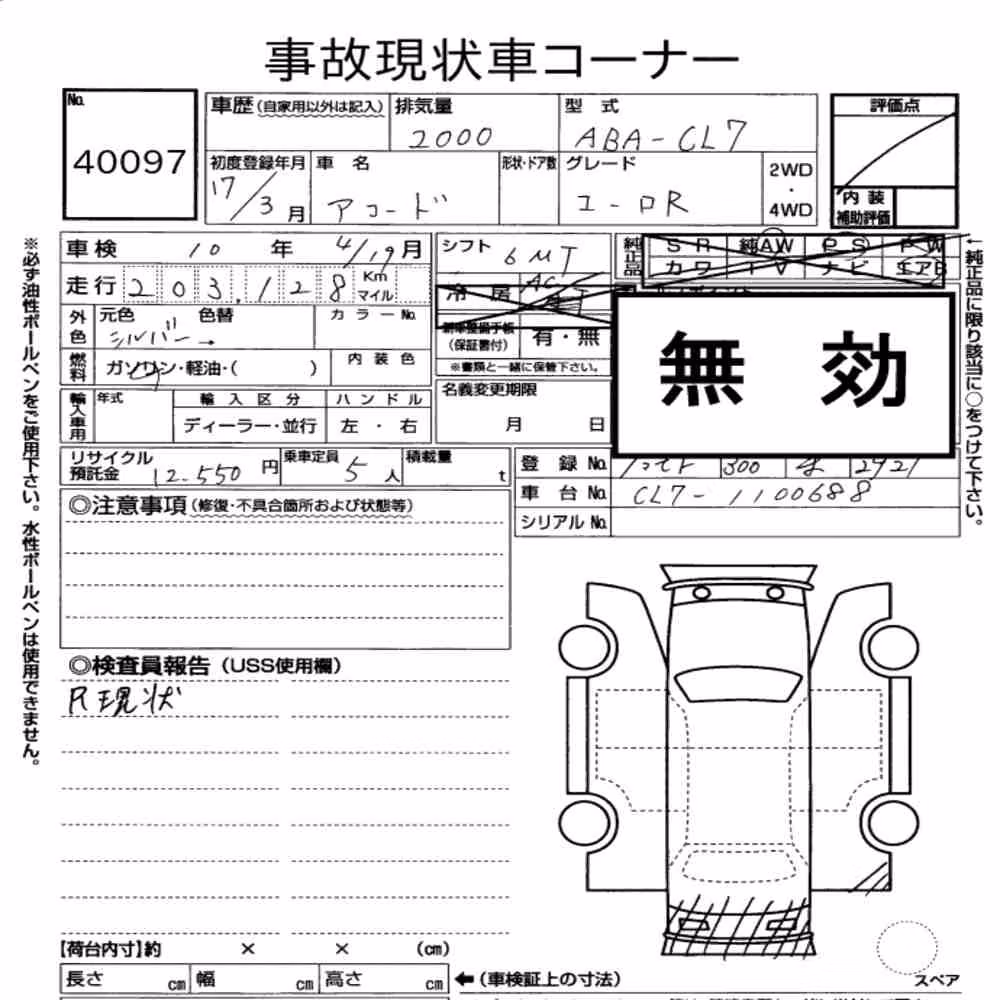 事故現状車コーナー
No.
40097
車歴(自家用以外は記入)
排気量
2000
型 式
ABA-CL7
初度登録年月
17/3月
車 名
アコード
形状・ドア数
グレード
ユーロR
2WD
・
4WD
評価点
内装
補助評価
車検 10 年 4/19月
走行 203,128 Km
マイル
外色
元色
シルバー
色替
カラーNo.
燃料
ガソリン・軽油・( )
内装色
輸入車用
年式
輸入区分
ディーラー・並行
ハンドル
左・右
シフト
6MT
冷房
AC
新車整備手帳
(保証書付)
有・無
※書類と一緒に保管下さい。
名義変更期限
月 日
純正品
SR 純AW PS PW
カワ TV ナビ エアB
無 効
リサイクル
預託金
12,550 円
乗車定員
5人
積載量
t
登録No.
300
2921
車台No.
CL7-1100688
シリアルNo.
◎注意事項(修復・不具合箇所および状態等)
◎検査員報告(USS使用欄)
R現状
【荷台内寸】約 × × (cm)
長さ cm
幅 cm
高さ cm
←(車検証上の寸法)
スペア
※必ず油性ボールペンをご使用下さい。水性ボールペンは使用できません。
←純正品に限り該当に○をつけて下さい。